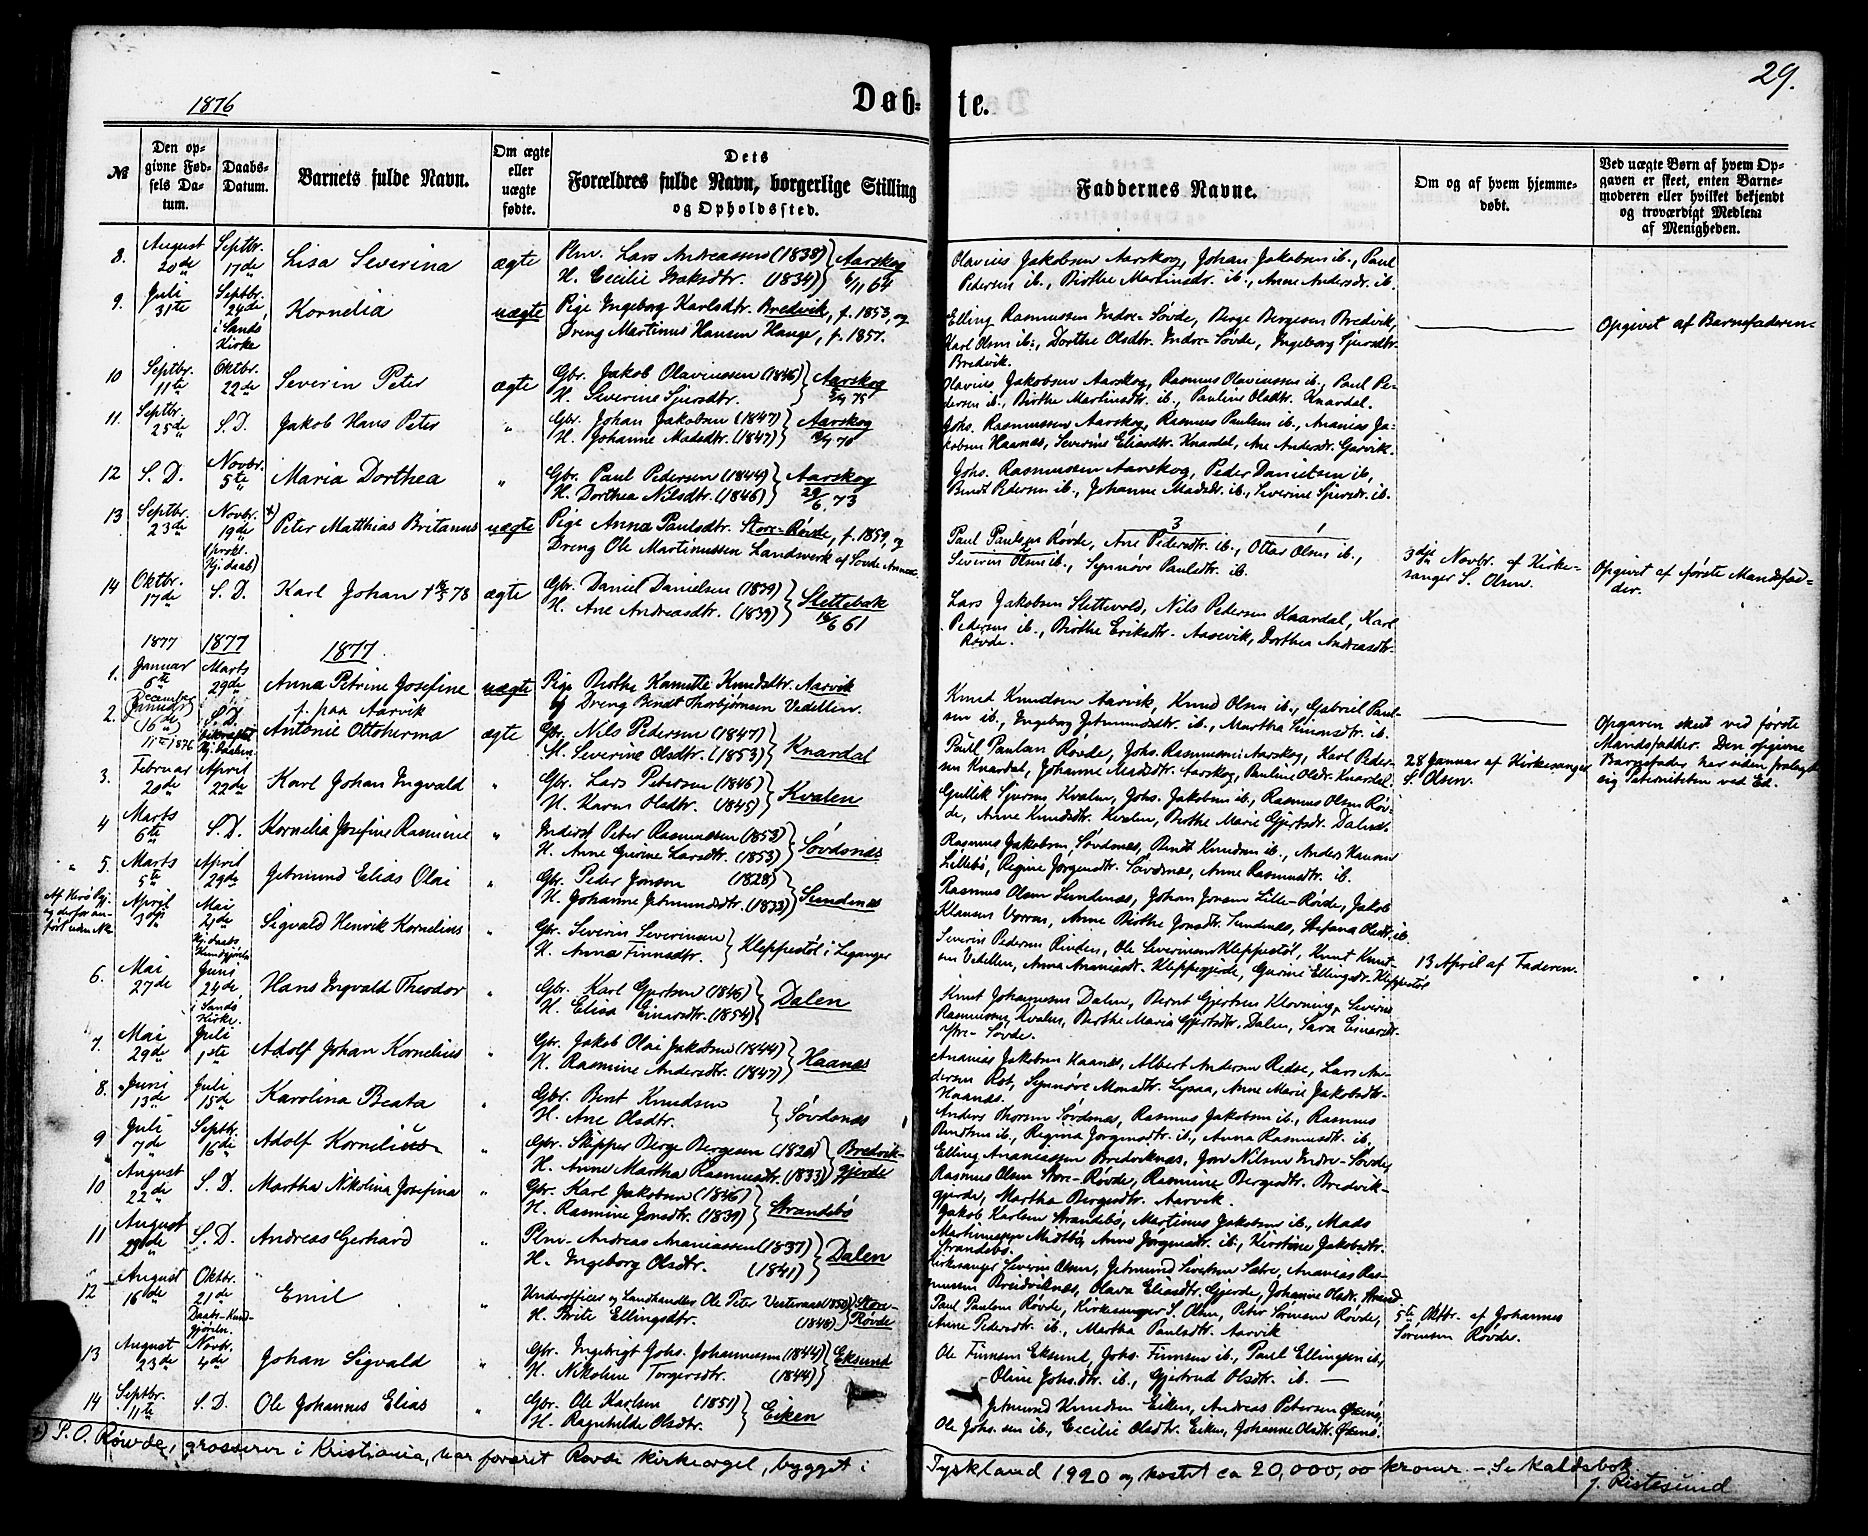 29.
1876
Døbte.
№
Den opgivne Fødsels Datum.
Daabs-Datum.
Barnets fulde Navn.
Om ægte eller uægte fødte.
Dets Forældres fulde Navn, borgerlige Stilling og Opholdssted.
Faddernes Navne.
Om og af hvem hjemmedøbt.
Ved uægte Børn af hvem Opgaven er skeet, enten Barnemoderen eller hvilket bekjendt og troværdigt Medlem af Menigheden.
8. August 20de Septbr. 17de Lisa Severina ægte Plm. Lars Andreassen (1838) H. Cecilie Isaksdtr. (1834) Aarskog 6/11 64
Olavius Jakobsen Aarskog, Johan Jakobsen ib., Paul
Pedersen ib., Birthe Martinsdr. ib., Anne Andersdr. ib.
9. Juli 31te Septbr. 24de i Sands Kirke Kornelia uægte Pige Ingeborg Karlsdtr. Bredvik, f. 1853, og Dreng Martinus Hansen Hauge, f. 1857.
Elling Rasmussen Indre-Søvde, Berge Bergesen Bredvik,
Karl Olsen ib., Dorthe Olsdtr. Indre-Søvde, Ingeborg Sjursdtr.
Bredvik.
Opgivet af Barnefaderen
10 Septbr. 11te Oktbr. 22de Severin Peter ægte Gbr. Jakob Olavinssen (1846) H. Severine Sjursdtr. Aarskog
Olavius Jakobsen Aarskog, Rasmus Olavinssen ib., Paul Pe-
dersen ib., Birthe Martinsdtr. ib., Pauline Olsdtr. Knardal.
11. Septbr. 25de S.D. Jakob Hans Peter " Gbr. Johan Jakobsen (1847) H. Johanne Madsdtr. (1847) Aarskog
Johs. Rasmussen Aarskog, Rasmus Paulsen ib., Ananias Ja-
kobsen Haanes, Severine Eliasdtr. Knardal, Ane Andersdtr. Gjørvik.
12 S.D. Novbr. 5te Maria Dorthea " Gbr. Paul Pedersen (1844) H. Dorthea Nilsdtr. (1846) Aarskog 29/6 73
Johs. Rasmussen Aarskog, Peder Danielsen ib,
Bendt Pedersen ib., Johanne Madsdtr. ib., Severine Sjursdtr. ib.
13 Septbr. 23de Novbr. 19de (prokl. Hj.daab) Peter Matthias Britanus uægte Pige Anna Paulsdtr. Store-Røvde, f. 1859, og Dreng Ole Martinussen Landmerk af Søvde Annex
Paul Paulsen Røvde, Ane Pedersdtr. ib., Otter Olsen ib.,
Severin Olsen ib., Synnøve Paulsdtr. ib.
3die Novbr. af Kirke-
sanger S. Olsen.
Opgivet af første Mandsfad-
der.
14 Oktbr. 17de S.D. Karl Johan ægte Gbr. Daniel Danielsen (1839) H. Ane Andreasdtr. (1839) Slettebak 16/6 61
Lars Jakobsen Slettevold, Nils Pedersen Knardal, Karl
Pedersen ib., Birthe Eriksdtr. Aasevik, Dorthea Andreasdtr.
Røvde.
1877 1877 1877
1. Januar 6te Marts 29de Anna Petrine Josefine f. paa Aarvik uægte Pige Birthe Kamitte Knudsdtr. Aarvik og Dreng Bendt Thorbjørnsen Vedellen.
Knud Knudsen Aarvik, Knud Olsen ib., Gabriel Paul-
sen ib., Ingeborg Jetmundsdtr. ib., Martha Simonsdtr. ib.
Opgaven skeet ved første
Mandsfadder. Den opgivne
Barnefader har siden fralagt
sig Paterniteten ved Ed.
2. December Januar (16de) 11te 1876 S.D. Antonie Ottoherma ægte Gbr. Nils Pedersen (1847) H. Severine Olsdtr. (1853) Knardal
Paul Paulsen Røvde, Johs. Rasmussen Aarskog, Karl Peder-
sen Knardal, Johanne Madsdtr. Aarskog, Pauline Olsdtr. Knardal.
28 Januar af Kirkesanger
S. Olsen.
3. Februar 20de April 22de Karl Johan Ingvald " Gbr. Lars Petersen (1846) H. Karen Olsdtr. (1845) Kvalen
Gullik Sjursen Kvalen, Johs. Jakobsen ib., Rasmus Olsen Røv-
de, Anne Knudsdtr. Kvalen, Birthe Marie Gjertsdtr. Dalen.
4 Marts 6te S.D. Kornelia Josefine Rasmine " Inderst Peter Rasmussen (1853) H. Anne Gurine Larsdtr. (1853) Søvdsnes
Rasmus Jakobsen Søvdenes, Bendt Knudsen ib., Anders Hansen
Lillebø, Regine Jørgensdtr. Søvdenes, Anne Rasmusdtr. ib.
5. Marts 5te April 29de Jetmund Elias Olai " Gbr. Peder Jonsen (1828) H. Johanne Jetmundsdtr. (1833) Sundenes
Rasmus Olsen Sundenes, Johan Jonsen Lille-Røvde, Jakob
Klausen Vorren, Anne Birthe Jonsdtr. Sundenes, Stefana Olsdtr. ib.
April 3die Mai 21de Hj.daabs Kundgjørelse Sigvald Henrik Kornelius " Gbr. Severin Severinsen H. Anna Finnsdtr. Kleppestøl i Leganger
Severin Pedersen Rinden, Ole Severinsen Kleppestøl, Knut Knut-
sen Vedellen, Anna Ananiasdtr. Kleppegjerde, Gurine Ellingsdtr. Kleppestøl
13 April af Faderen.
6. Mai 27de Juni 24de i Sands Kirke. Hans Ingvald Theodor " Gbr. Karl Gjertsen (1846) H. Elisa Einarsdtr. (1854) Dalen
Knut Johannesen Dalen, Bernt Gjertsen Klovning, Severin
Rasmussen Kvalen, Birthe Maria Gjertsdtr. Dalen, Sara Einarsdt.
Ytre-Søvde.
7. Mai 29de Juli 1ste Adolf Johan Kornelius " Gbr. Jakob Olai Jakobsen (1844) H. Rasmine Andersdtr. (1847) Haanes
Ananias Jakobsen Haanes, Albert Andersen Redse, Lars An-
dersen Rot, Synnøve Monsdtr. Lyssa, Anne Marie Jakobsdtr.
Haanes.
8. Juni 13de Juli 15de Karolina Beata " Gbr. Bent Knudsen H. Ane Olsdtr. Søvdenes
Anders Thorsen Søvdenes, Rasmus Jakobsen ib., Rasmus
Bendtsen ib., Regina Jørgensdtr. ib., Anna Rasmusdtr. ib.
9 Juli 7de Septbr. 16de Adolf Kornelius " Gbr. Skipper Berge Bergesen H. Anne Martha Rasmusdtr. (1833) Bredvik-gjerde
Elling Ananiassen Bredviknes, Jon Nilsen Indre-Søvde,
Rasmus Olsen Store-Røvde, Rasmine Bergesdtr. Bredvik-
gjerde, Martha Bergesdtr. Aarvik.
10 August 22de S.D. Martha Nikolina Josefina " Gbr. Karl Jakobsen (1846) H. Rasmine Jonsdtr. (1839) Strandebø
Jakob Karlsen Strandebø, Martinus Jakobsen ib., Mads
Martinussen Midtbø, Anne Jørgensdtr. ib., Kirstine Jakobsdtr.
Strandebø.
11 August S.D. Andreas Gerhard " Plm. Andreas Ananiassen (1837) H. Ingeborg Olsdtr. (1841) Dalen
Kirkesanger Severin Olsen, Jetmund Sivertsen Sætre, Ananias Ras-
mussen Breidviknes, Olava Eliasdtr. Gjerde, Johanne Olsdtr. Strand
12 August 16de Oktbr. 21de Daabs-Kundgjørelse. Emil " Underofficer og Landhandler Ole Peter Vestervand H. Brite Ellingsdtr. (1848) Store-Røvde
Paul Paulsen Røvde, Kirkesanger S. Olsen, Peter Sørensen Røvde,
Anne Pedersdtr. ib., Martha Paulsdtr. Aarvik
5te Oktbr. af Johannes
Sørensen Røvde.
13 August 23de Novbr. 4de Johan Sigvald " Gbr. Ingebrigt Johs. Johannesen (1844) H. Nikoline Torgersdtr. (1844) Eksund
Ole Finnsen Eksund, Johs. Finnsen ib., Paul Ellingsen ib.,
Oline Johs.dtr. ib., Gjertrud Olsdtr. ib.
14 Septbr. 11te S.D. Ole Johannes Elias " Gbr. Ole Karlsen (1851) H. Ragnhilde Olsdtr. Eiken
Jetmund Knudsen Eiken, Andreas Petersen Ørenes,
Ole Johs.sen ib., Cecilie Olsdtr. Eiken, Johanne Olsdtr. Ørenes.
P.O. Røwde, grosserer i Kristiania, har foræret Rovde kirkeorgel, bygget i
Tyskland 1920 og kostet ca 20,000,00 kroner. – Se Kaldsbok
J. Ristesund